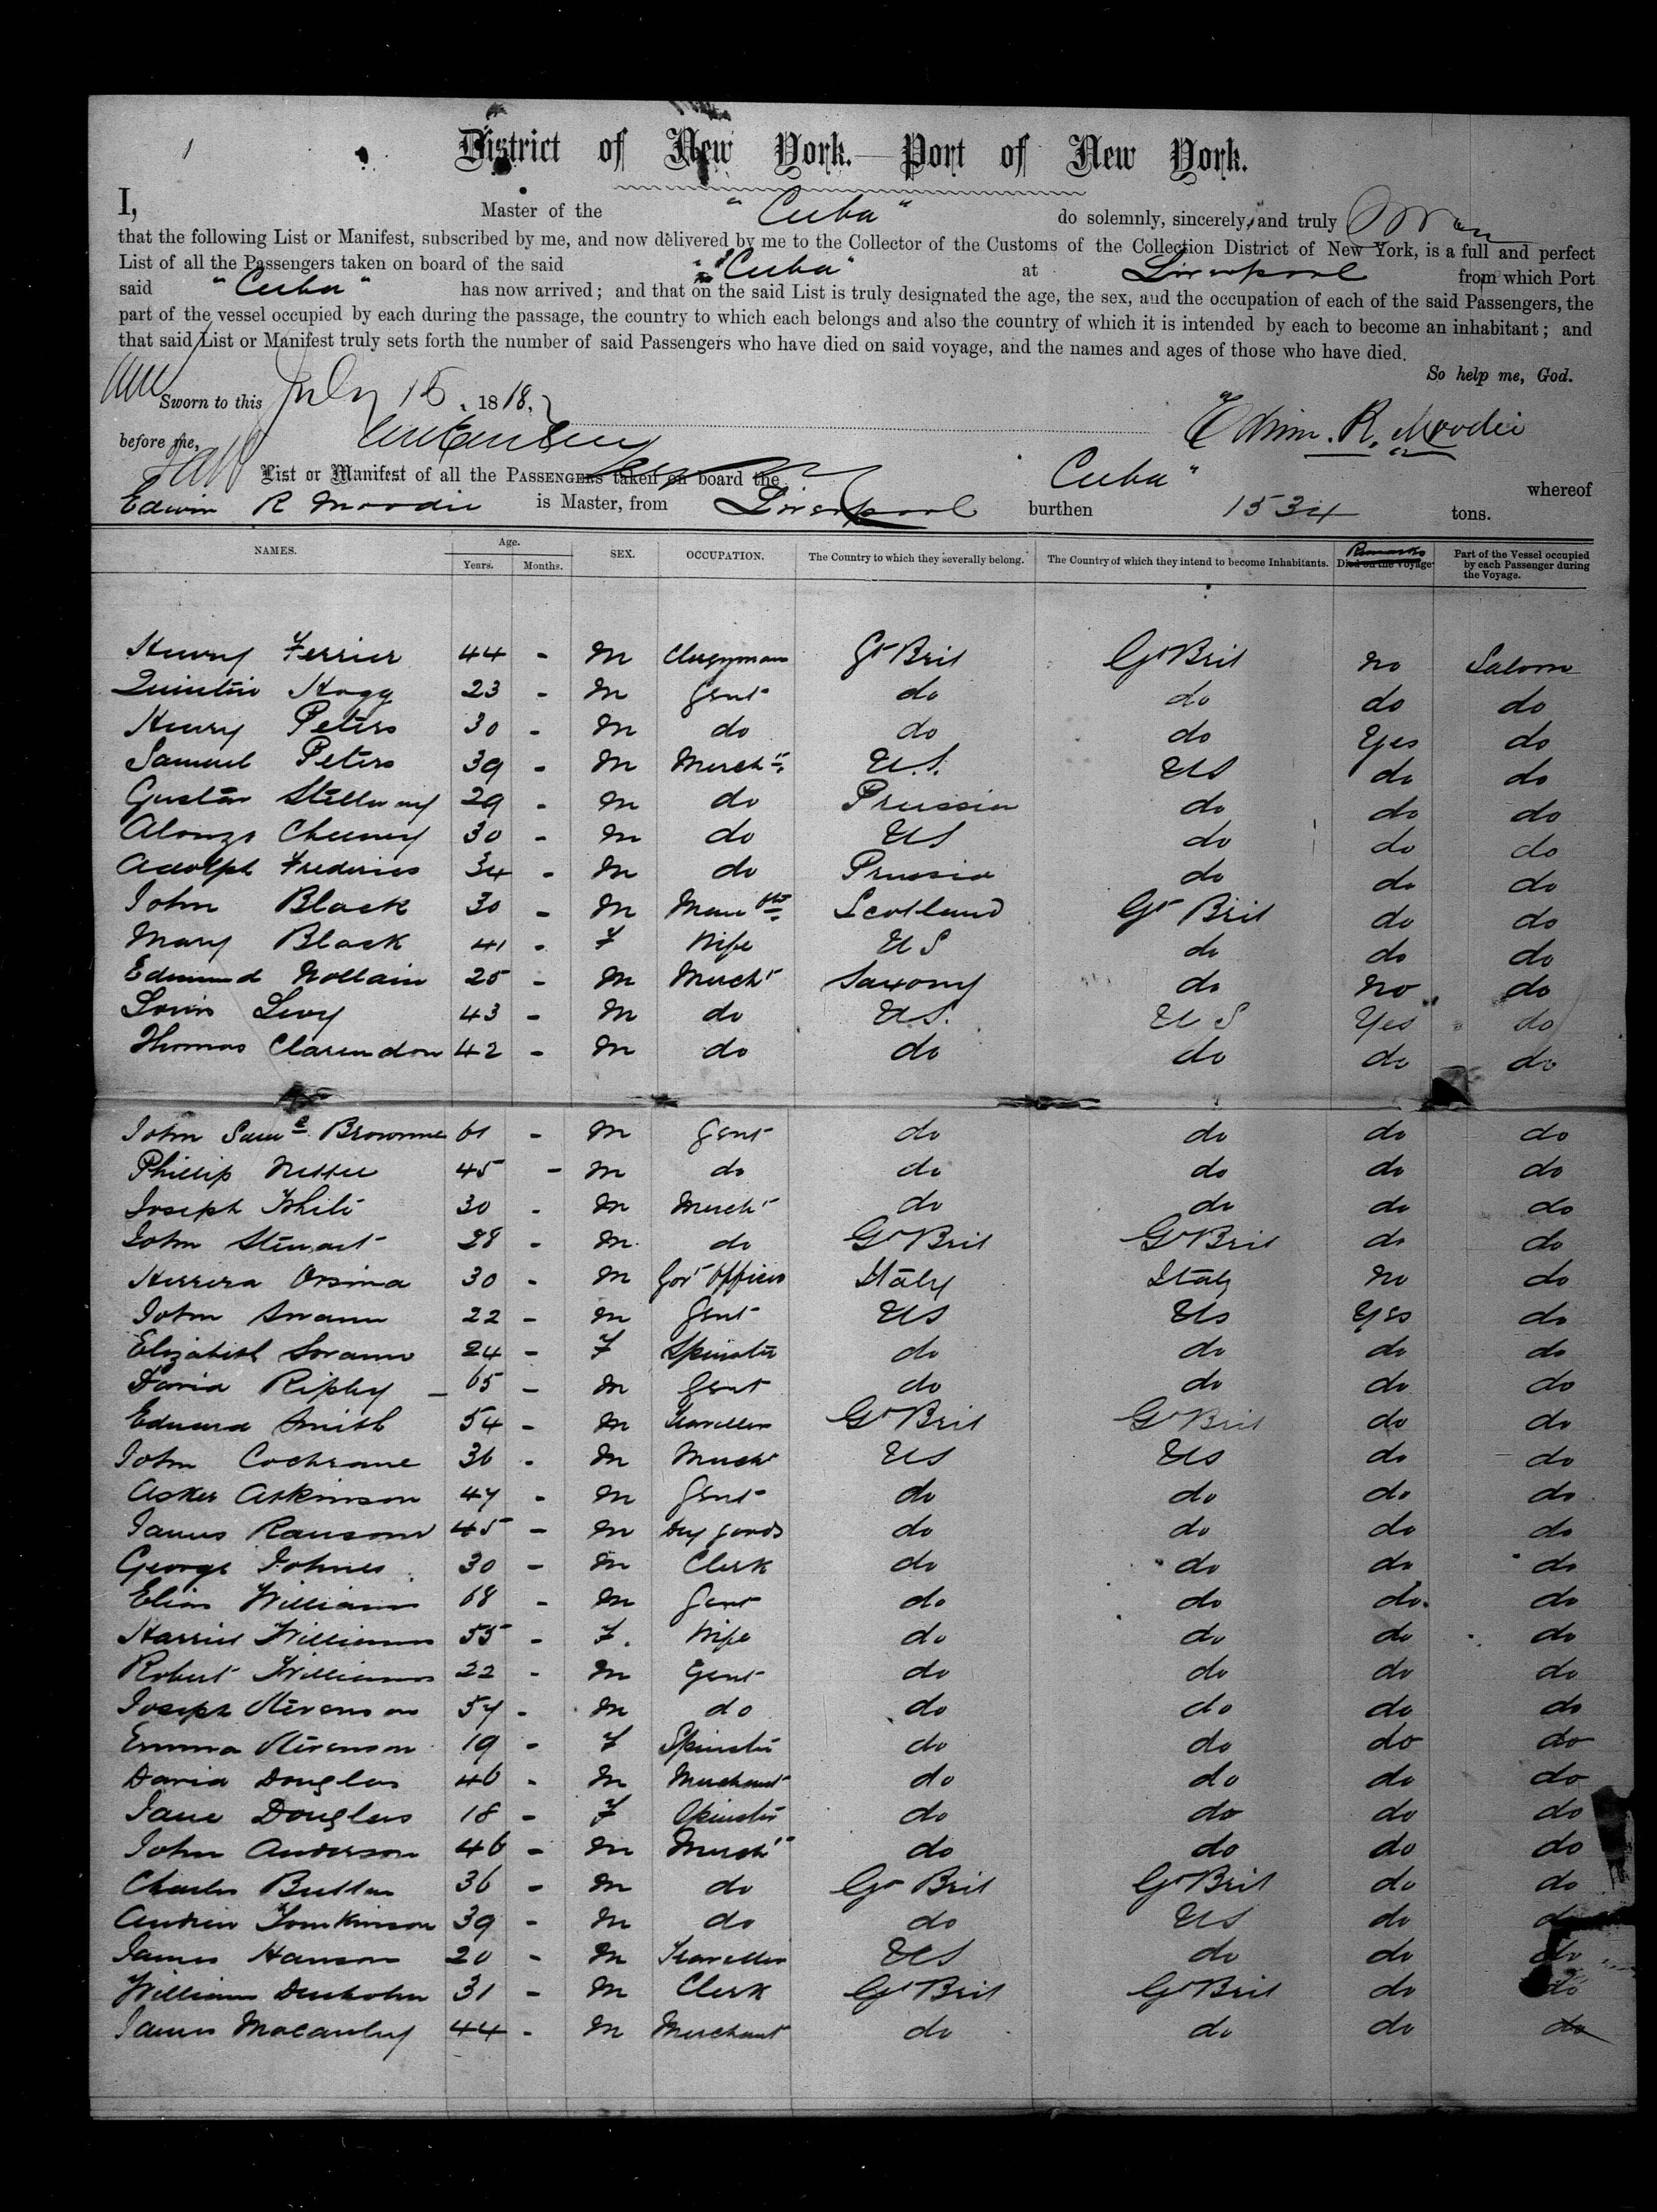 1
District of New York.—Port of New York.
I, Master of the "Cuba" do solemnly, sincerely, and truly
that the following List or Manifest, subscribed by me, and now delivered by me to the Collector of the Customs of the Collection District of New York, is a full and perfect
List of all the Passengers taken on board of the said "Cuba" at Liverpool from which Port
said "Cuba" has now arrived; and that on the said List is truly designated the age, the sex, and the occupation of each of the said Passengers, the
part of the vessel occupied by each during the passage, the country to which each belongs and also the country of which it is intended by each to become an inhabitant; and
that said List or Manifest truly sets forth the number of said Passengers who have died on said voyage, and the names and ages of those who have died.
So help me, God.
Sworn to this July 15, 1868,
before me, Edwin. R. Moodie
List or Manifest of all the PASSENGERS taken on board the Cuba" whereof
Edwin R Moodie is Master, from Liverpool burthen 1534 tons.
NAMES. Age. Years. Months. SEX. OCCUPATION. The Country to which they severally belong. The Country of which they intend to become Inhabitants. Remarks Died on the Voyage Part of the Vessel occupied by each Passenger during the Voyage.
Henry Ferrier 44 - M Clergyman Gt Brit Gt Brit no Saloon
Quintin Hogg 23 - M Gent do do do do
Henry Peters 30 - M do do do Yes do
Samuel Peters 39 - M Mercht. U.S. US do do
Gustav 29 - M do Prussia do do do
Alonzo Cheeney 30 - M do US do do do
Adolph Frederics 34 - M do Prussia do do do
John Black 30 - M Scotland Gt Brit do do
Mary Black 41 - F Wife US do do do
Edmund Nollain 25 - M Mercht Saxony do no do
Louis Levy 43 - M do U.S. US Yes do
Thomas Clarendon 42 - M do do do do do
John Saml Browne 61 - M Gent do do do do
Phillip 45 - M do do do do do
Joseph White 30 - M Mercht do do do do
John Stewart 28 - M do Gt Brit Gt Brit do do
Herrera Orsina 30 - M Govt Officer Italy Italy no do
John Swann 22 - M Gent US US Yes do
Elizabeth Swann 24 - F Spinster do do do do
David Ripley 65 - M Gent do do do do
Edward Smith 54 - M Traveller Gt Brit Gt Brit do do
John Cochrane 36 - M Mercht US US do do
Asker Atkinson 47 - M Gent do do do do
James Ransom 45 - M Dry goods do do do do
George Johnes 30 - M Clerk do do do do
Elias Williams 68 - M Gent do do do do
Harriet Williams 55 - F. Wife do do do do
Robert Williams 22 - M Gent do do do do
Joseph Stevenson 57 - M do do do do do
Emma Stevenson 19 - F Spinster do do do do
David Douglas 46 - M Merchant do do do do
Jane Douglas 18 - F Spinster do do do do
John Anderson 46 - M Mercht do do do do
Charles Butler 36 - M do Gt Brit Gt Brit do do
Andrew Tomkinson 39 - M do do US do do
James Hanson 20 - M Traveller US do do do
William Denholm 31 - M Clerk Gt Brit Gt Brit do do
James Macauley 44 - M Merchant do do do do